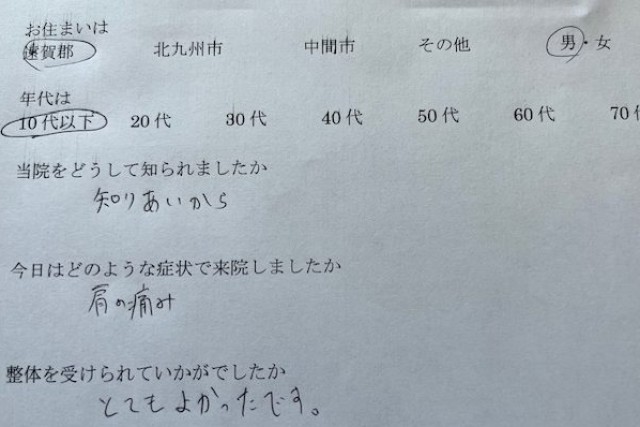 お住まいは
遠賀郡 北九州市 中間市 その他 男・女
年代は
10代以下 20代 30代 40代 50代 60代 70代
当院をどうして知られましたか
知りあいから
今日はどのような症状で来院しましたか
肩の痛み
整体を受けられていかがでしたか
とてもよかったです。